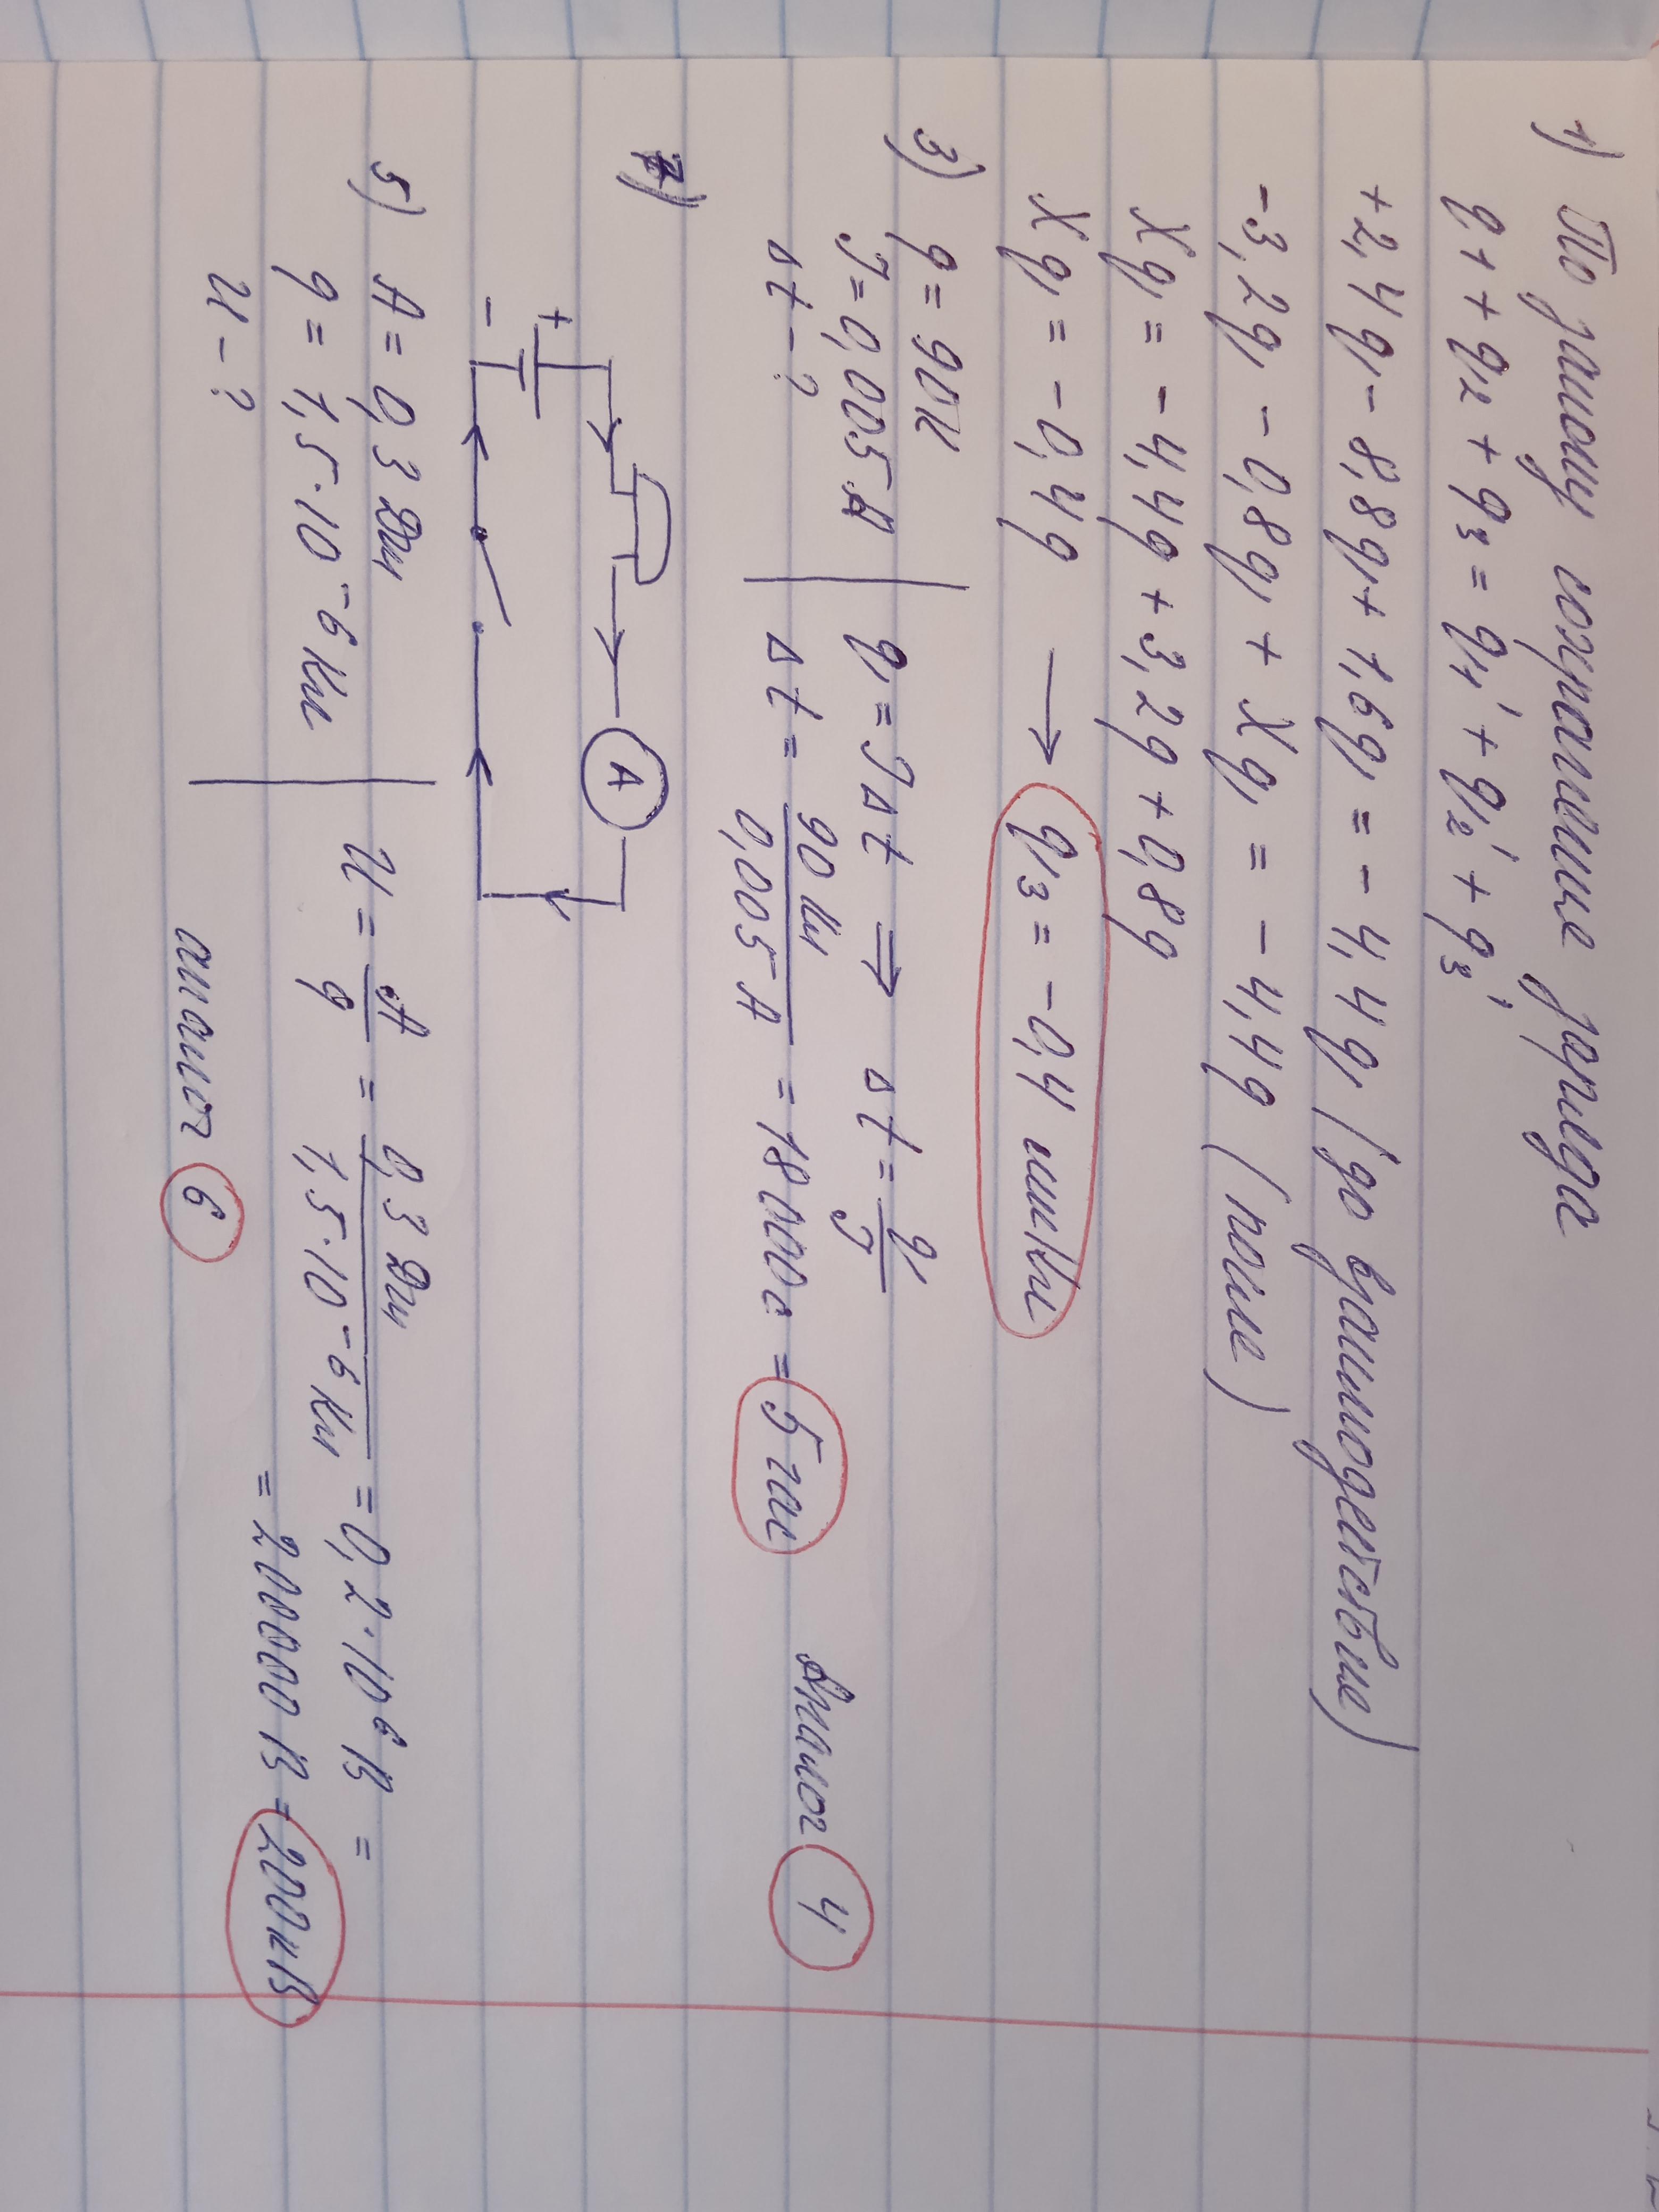 1) По закону сохранение заряда
q1 + q2 + q3 = q1' + q2' + q3'
+2,4q - 8,8q + 1,6q = -4,4q (до взаимодействие)
-3,2q - 0,8q + Xq = -4,4q (после)
Xq = -4,4q + 3,2q + 0,8q
Xq = -0,4q → q3 = -0,4 мкКл
3) q = 90К
J = 0,005А
Δt - ?
q = JΔt ⇒ Δt = q/J
Δt = 90 Кл / 0,005 А = 18000с = 5 час
Аналог 4
+
-
A
5) A = 0,3 Дж
q = 1,5·10⁻⁶ Кл
U - ?
U = A/q = 0,3 Дж / 1,5·10⁻⁶ Кл = 0,2·10⁶ В =
= 200000 В = 200кВ
аналог 6